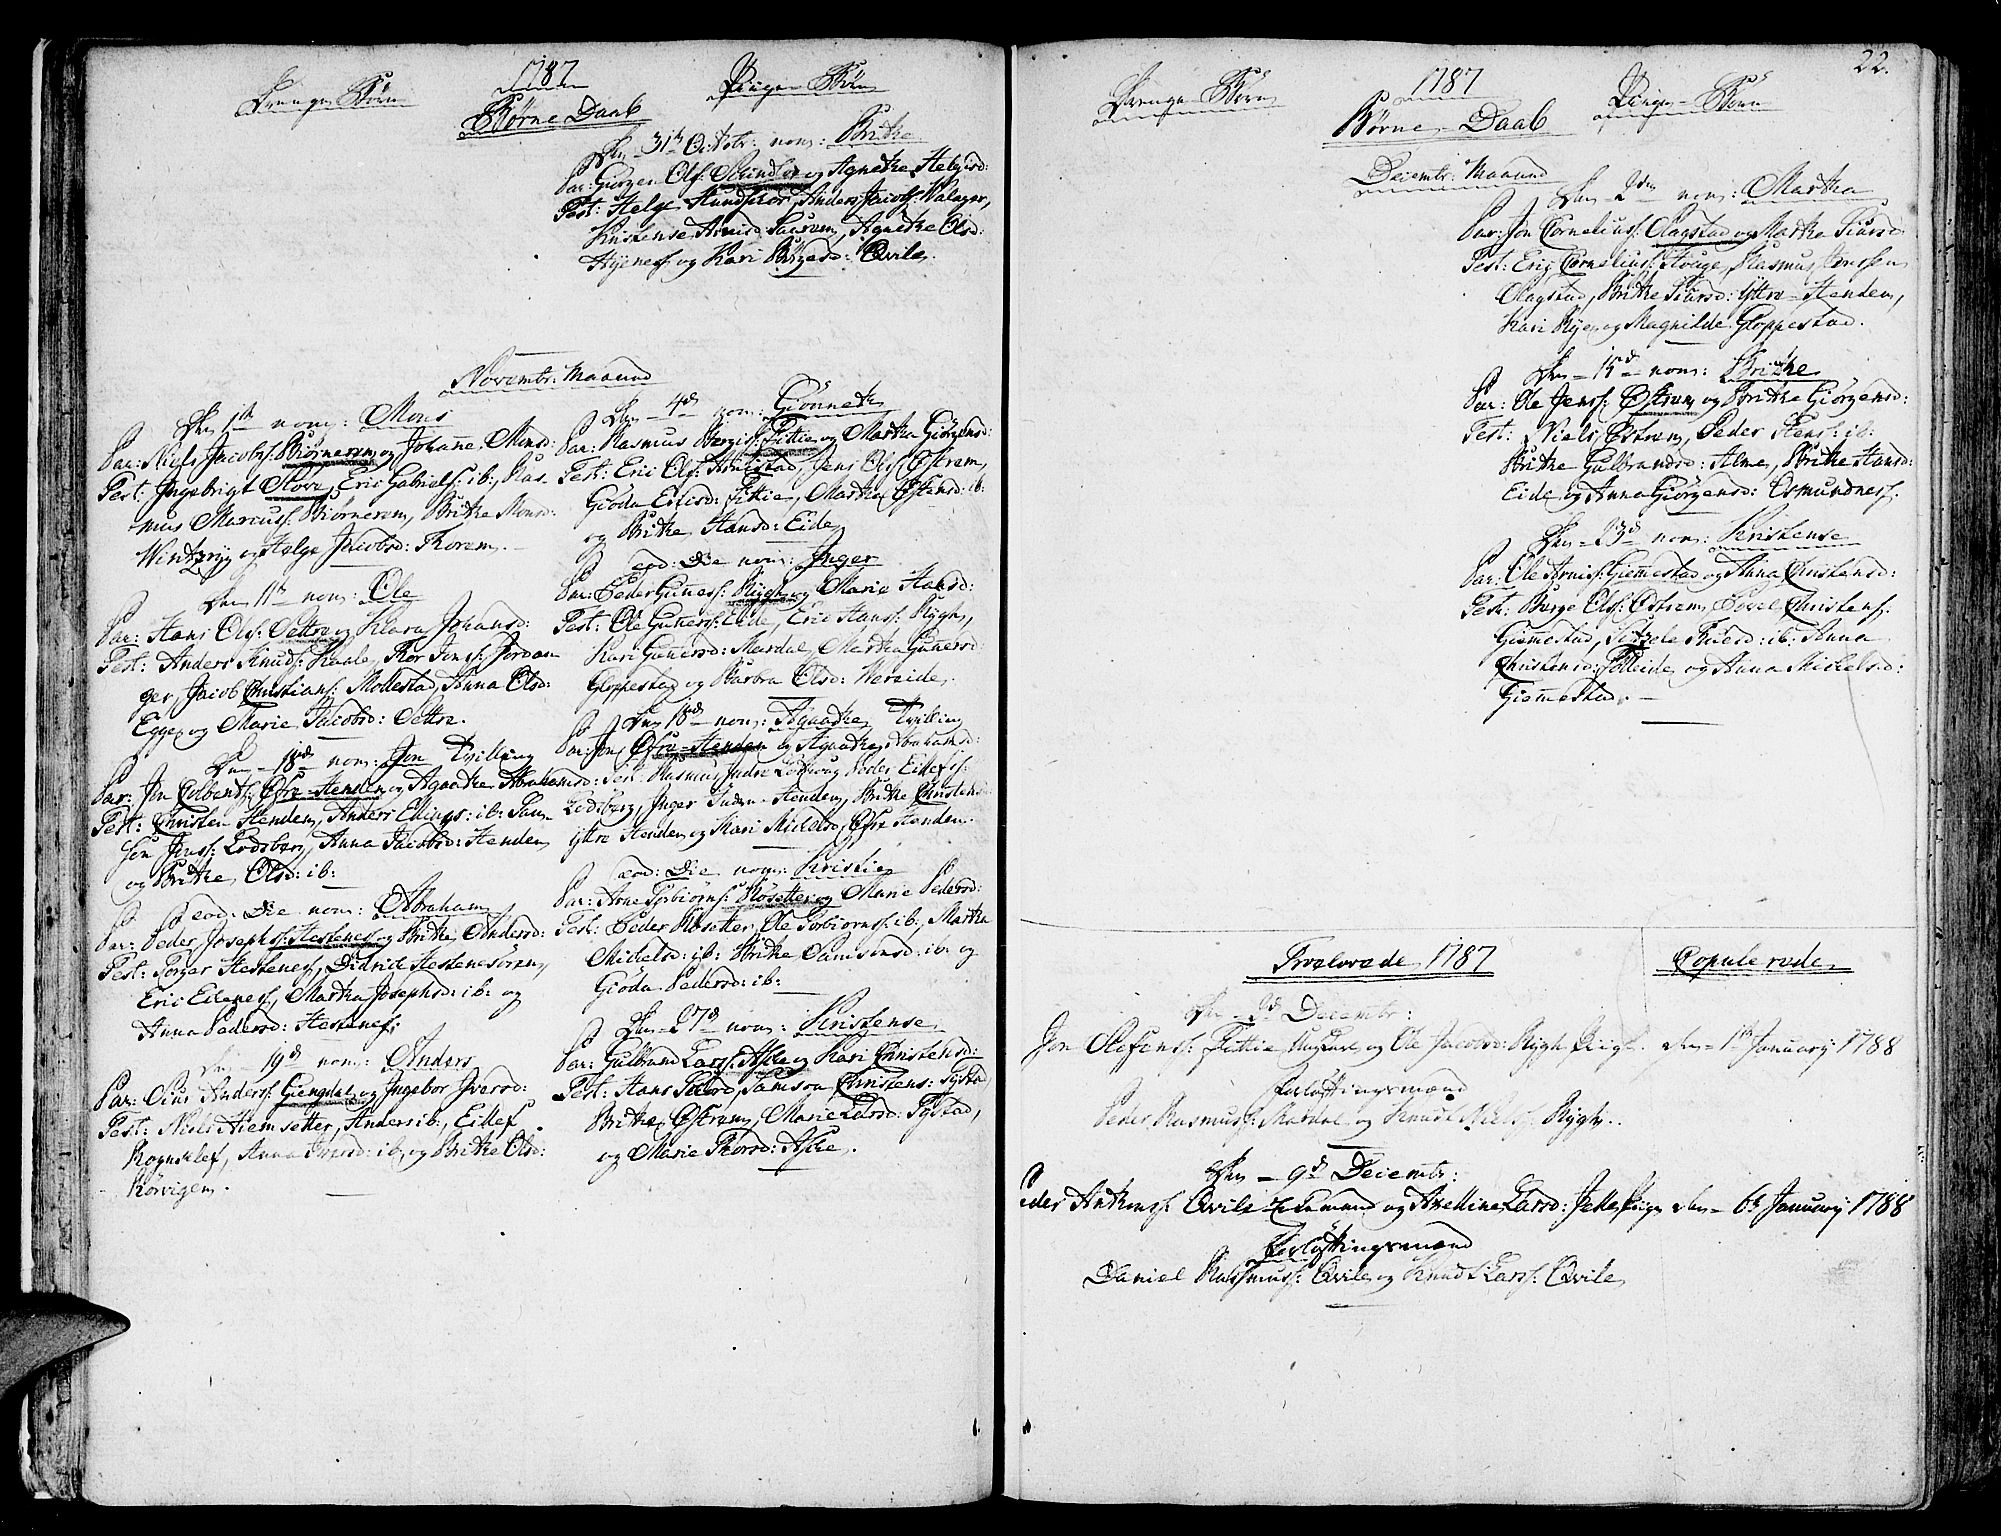 1787
Drenge Børn
Pige Børn
Børne Daab
Den 31th Octobr: nom: Brithe
Par: Giørgen Ols: og Agnethe Helgesd:
Test: Helge Hundskor, Anders Jacobs: Walager,
Kristense Arnesd: Agnethe Olsd:
Hijenes og Kari Børgesd: Qvile.
Novembr: Maaned
Den 1th nom: Mons
Par: Niels Jacobs: Biørnerem og Johane Monsd:
Test: Ingebrigt Flove, Eric Gabriels: ib:, Ras-
mus Marcuss: Biørnerem, Brithe Monsd:
og Helge Jacobsd: Thorem.
Den 11th nom: Ole
Par: Hans Ols: Settre og Klara Johansd:
Test: Anders Knuds: Kaale, Thor Jons: Jordan
ger, Jacob Christians: Mollestad, Anna Olsd:
Egge og Marie Jacobsd: Settre.
Den 18d nom: Jon Tvilling
Par: Jon Colbends: Øfre-Henden og Agaathe Abrahamsd:
Test: Christen Henden, Anders Ellings: ib: Sam-
son Jons: Lodsberg, Anna Jacobsd: Henden
og Brithe Olsd: ib:
eod: Die nom: Abraham
Par: Peder Josephs: Hestenes og Brithe Andersd:
Test: Torger Hestenes, Didrick Hestenesøren,
Eric Eidenes, Martha Josephsd: ib: og
Anna Pedersd: Hestenes:
Den 19d nom: Anders
Par: Siur Anders: Giengdal og Ingebor Iversd:
Test: Niels Hiemsetter, Anders ib:, Ellef
Rognsklef, Anna Iversd: ib: og Brithe Olsd:
Rørvigen.
Den 4d nom: Giønneth
Par: Rasmus Bergis: Fittie og Martha Giørgensd:
Test: Eric Ols: Arnestad, Jens Ols: Østrem,
Gioda Ericsd: Fittie, Martha Østensd: ib:
og Brithe Hansd: Eide
eod: Die nom: Inger
Par: Peder Guñers: Rygh og Marie Hansd:
Test: Ole Guñers: Eide, Eric Hans: Rygh,
Kari Guñersd: Mardal, Martha Guñersd:
Gloppestad og Barbra Olsd: Wereide.
Den 18d nom: Agaathe Tvilling
Par: Jon Øfre-Henden og Agaathe Abrahamsd:
Test: Rasmus Indre Peder Eilefs:
Lodsberg, Inger Inden-Henden, Brithe Christensd:
ijtre Henden og Kari Mickelsd: Øfre Henden.
eod: Die nom: Kristie
Par: Arne Torbiørns: Røsetter og Marie Pedersd:
Test: Peder Røsetter, Ole Torbiørns: ib:, Martha
Mickelsd: ib: Brithe Samsonsd: ib: og
Giøda Pedersd: ib:
Den 27d nom: Kristense
Par: Gulbrand Lars: Aske og Kari Christensd:
Test: Hans Samson Christens: Tystad
Brithe Østrem, Marie Larsd: Tystad,
og Marie Thorsd: Aske.
22.
1787
Drenge Børn
Pige-Børn
Børne-Daab
Decembr: Maaned
Den 2den nom: Martha
Par: Jon Cornelius: Olagstad og Marthe Siursd:
Test: Eric Cornelius: Houge, Rasmus Jenssen
Olagstad, Brithe Siursd: ijttre-Henden,
Kari Rye og Magnilde Gloppestad.
Den 15d nom: Brithe
Par: Ole Jens: Østrem og Brithe Giørgensd:
Test: Niels Østrem, Peder Stens: ib:
Brithe Gulbrandsd: Alme, Brithe Hansd:
Eide og Anna Giørgensd: Osmundnes.
Den 23d nom: Kristense
Par: Ole Arnis: Giemmestad og Anna Christensd:
Test: Børge Ols: Østrem, Christens:
Giemmestad, ib: Anna
Christensd: Solleide og Anna Mickelsd:
Giemmestad.
Troelovede 1787
Copulerede
Den 2d Decembr:
Jon Olofens: Fittie og Ole Jacobsd: Rygh Pige. den 1th January 1788
Forløftingsmænd
Peder Rasmus: Mardal og Knud Niels: Rygh.
Den 9d Decembr:
Peder Anthons: Qvile og Anelline Larsd: Pige den 6t January 1788
Forløftingsmænd
Daniel Rasmus: Qvile og Knud Lars: Qvile